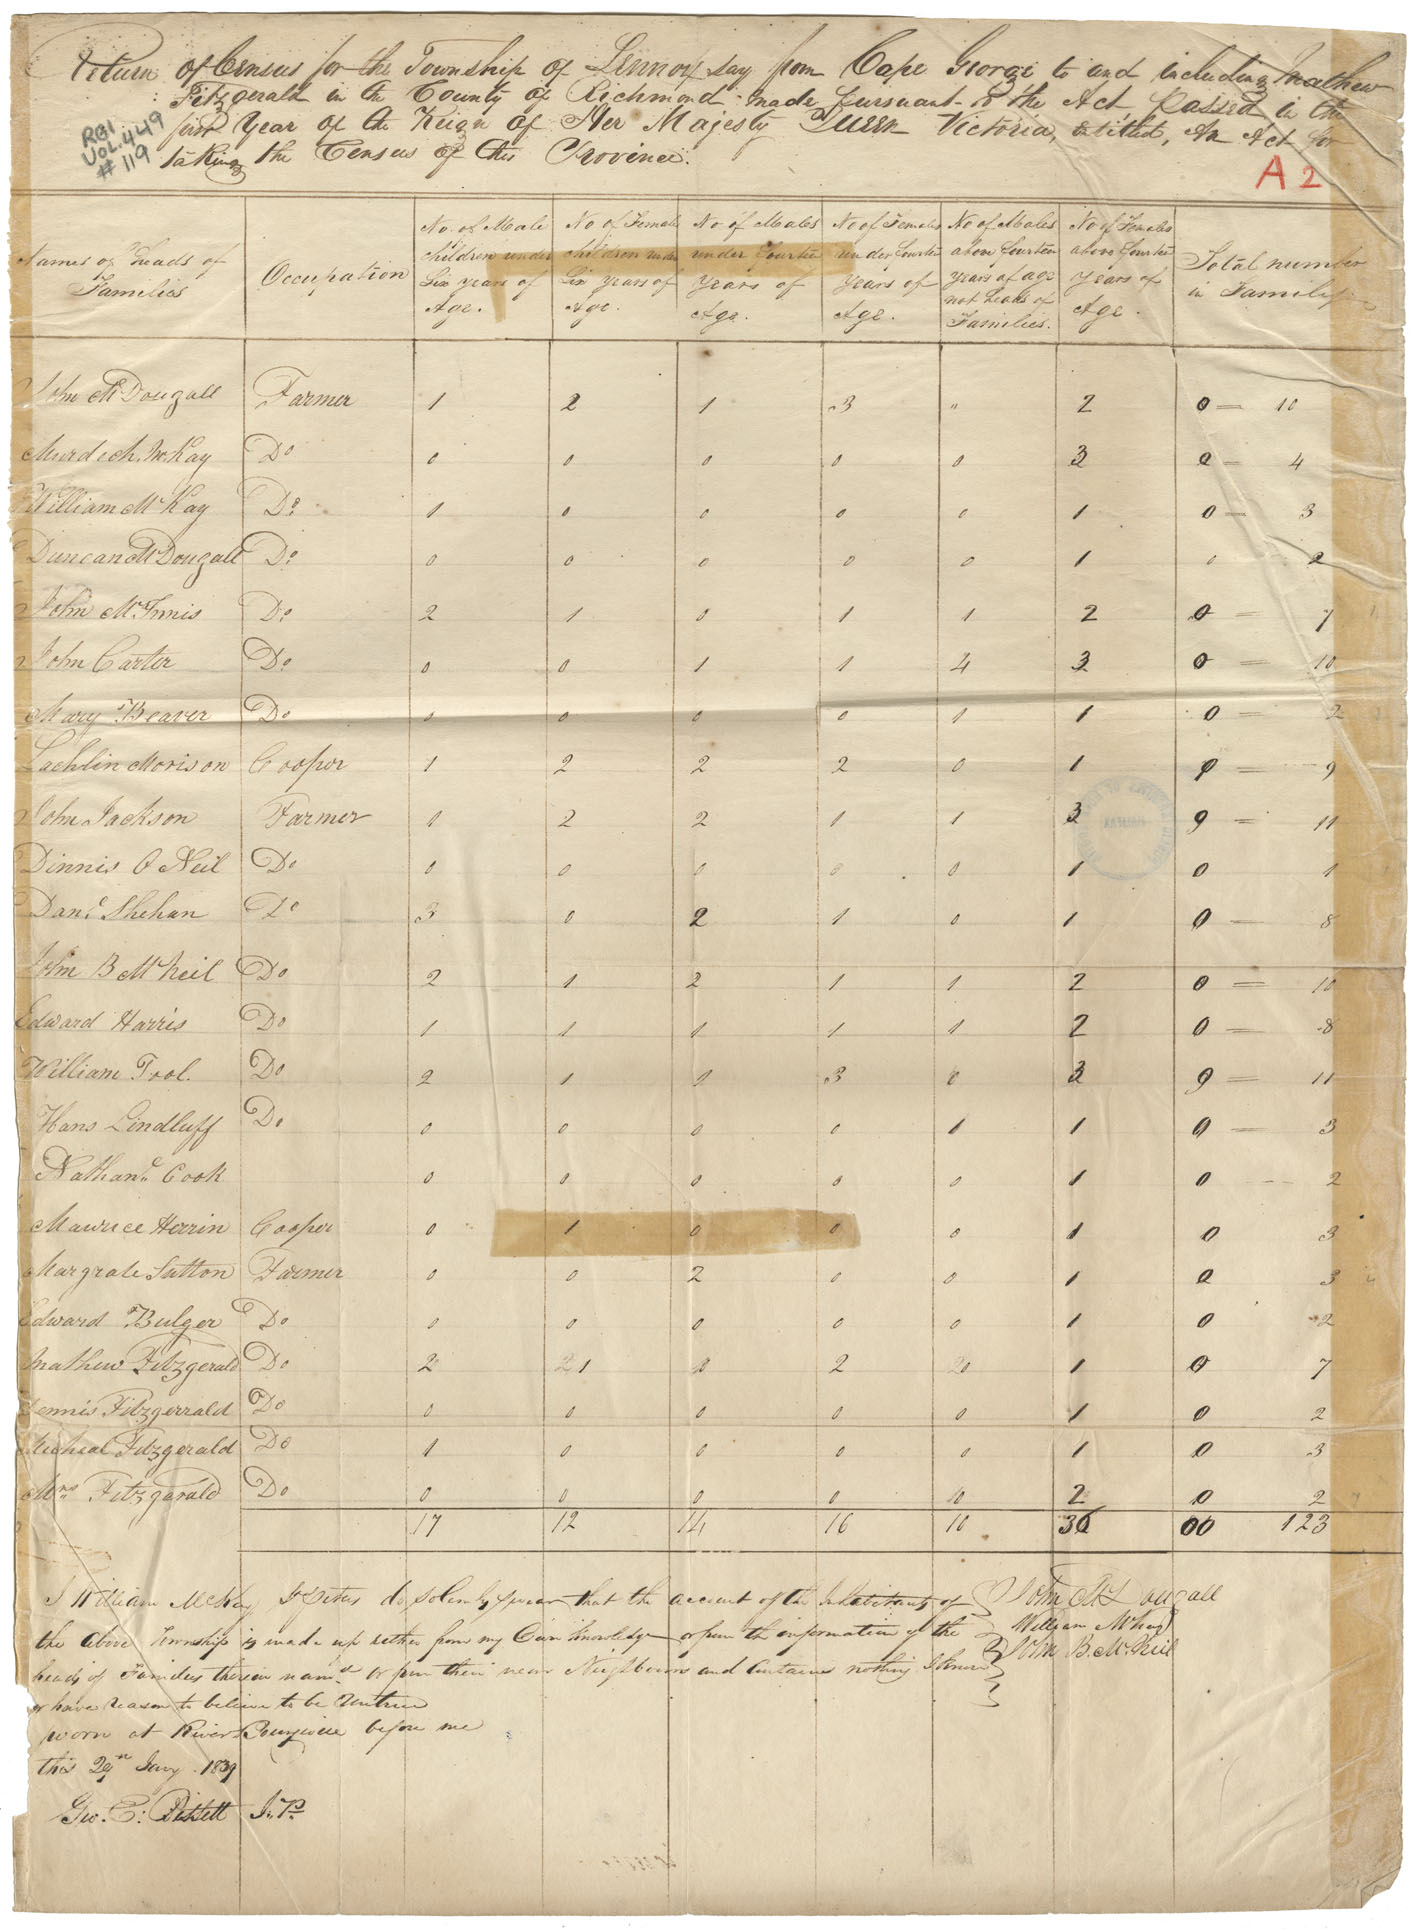 Return of Census for the Township of Lennox say from Cape George to and including Mathew
Fitzgerald in the County of Richmond made pursuant to the Act passed in the
first Year of the Reign of Her Majesty Queen Victoria, entitled, An Act for
taking the Census of this Province.
RG1
VOL. 449
# 119
A 2
Names of heads of Families | Occupation | No. of Male children under Six years of Age. | No of Female children under Six years of Age. | No of Males under fourteen years of Age. | No of Females under fourteen Years of Age. | No of Males above fourteen years of age not heads of Families. | No of Females above fourteen years of Age. | Total number in Families
John McDougall Farmer 1 2 1 3 " 2 0 = 10
Murdech McKay Do 0 0 0 0 0 3 0 = 4
William McKay Do 1 0 0 0 0 1 0 = 3
Duncan McDougall Do 0 0 0 0 0 1 0 2
John McInnis Do 2 1 0 1 1 2 0 = 7
John Carter Do 0 0 1 1 4 3 0 = 10
Mary Beaver Do 0 0 0 0 1 1 0 = 2
Lachlin Morison Cooper 1 2 2 2 0 1 0 = 9
John Jackson Farmer 1 2 2 1 1 3 0 = 11
Dinnis O Neil Do 0 0 0 0 0 1 0 1
Danl Shehan Do 3 0 2 1 0 1 0 - 8
John B McNeil Do 2 1 2 1 1 2 0 = 10
Edward Harris Do 1 1 1 1 1 2 0 = 8
William Pool. Do 2 1 1 3 0 3 0 = 11
Hans Lindluff Do 0 0 0 0 1 1 0 = 3
Nathanl Cook 0 0 0 0 0 1 0 2
Maurice Herrin Cooper 0 1 0 0 0 1 0 3
Margrate Sutton Farmer 0 0 2 0 0 1 0 3
Edward Bulger Do 0 0 0 0 0 1 0 2
Mathew Fitzgerald Do 2 1 0 2 0 1 0 7
Dennis Fitzgerrald Do 0 0 0 0 0 1 0 2
Micheal Fitzgerald Do 1 0 0 0 0 1 0 3
Mrs Fitzgarald Do 0 0 0 0 0 2 0 2
17 12 14 16 10 36 00 123
I William McKay St Peters do solemnly swear that the account of the Inhabitants of
the above Township is made up either from my Own Knowledge or from the information of the
heads of Families therein named or from their near Neighbours and Contains nothing I know
or have reason to believe to be Untrue
Sworn at River Bourgeois before me
this 29th Jany. 1839
Geo. E: Bissett J. P.
John McDougall
William McKay
John B. McNeil